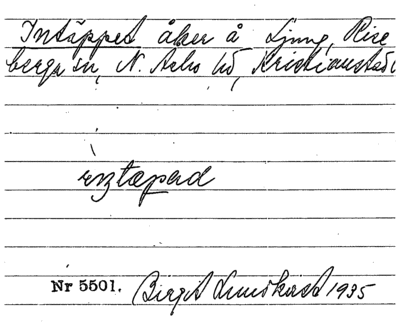 Intäppet åker å Ljung, Rise
berga sn, N. Åsbo hd, Kristianstads
ìntæpəd
Nr 5501. Birgit Lundkvist 1935